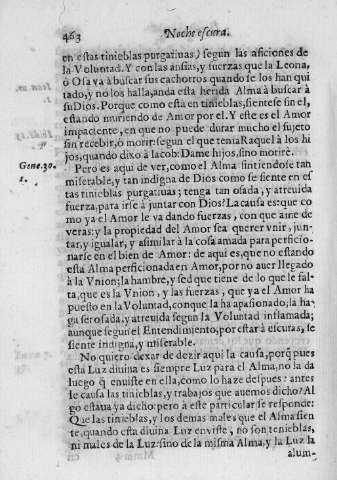 463
Noche escura.
en estas tinieblas purgatiuas) segun las aficiones de
la Voluntad. Y con las ansias, y fuerzas que la Leona,
ò Osa và à buscar sus cachorros quando se los han qui
tado, y no los halla, anda esta herida Alma à buscar à
su Dios. Porque como està en tinieblas, sientese sin el,
estando muriendo de Amor por el. Y este es el Amor
impaciente, en que no puede durar mucho el sujeto
sin recebir, ò morir: segun el que tenia Raquel à los hi
jos, quando dixo à Iacob: Dame hijos, sino morirè.
Gene. 30.
1.
Pero es aqui de ver, como el Alma sintiendose tan
miserable, y tan indigna de Dios como se siente en es
tas tinieblas purgatiuas; tenga tan osada, y atreuida
fuerza, para irse à juntar con Dios? La causa es: que co
mo ya el Amor le va dando fuerzas, con que ame de
veras: y la propiedad del Amor sea querer vnir, jun-
tar, y igualar, y asimilar à la cosa amada para perficio-
narse en el bien de Amor: de aqui es, que no estando
esta Alma perficionada en Amor, por no auer llegado
à la Vnion; la hambre, y sed que tiene de lo que le fal-
ta, que es la Vnion, y las fuerzas, que ya el Amor ha
puesto en la Voluntad, con que la ha apasionado; la ha-
ga ser osada, y atreuida segun la Voluntad inflamada;
aunque segun el Entendimiento, por estàr à escuras, se
siente indigna, y miserable.
No quiero dexar de dezir aqui la causa, porq̃ pues
esta Luz diuina es siempre Luz para el Alma, no la da
luego q̃ enviste en ella, como lo haze despues? antes
le causa las tinieblas, y trabajos que auemos dicho? Al
go estaua ya dicho: pero à este particular se responde:
Que las tinieblas, y los demas males que el Alma sien
te, quando esta diuina Luz enviste, no son tenieblas,
ni males de la Luz: sino de la misma Alma, y la Luz la
alum-